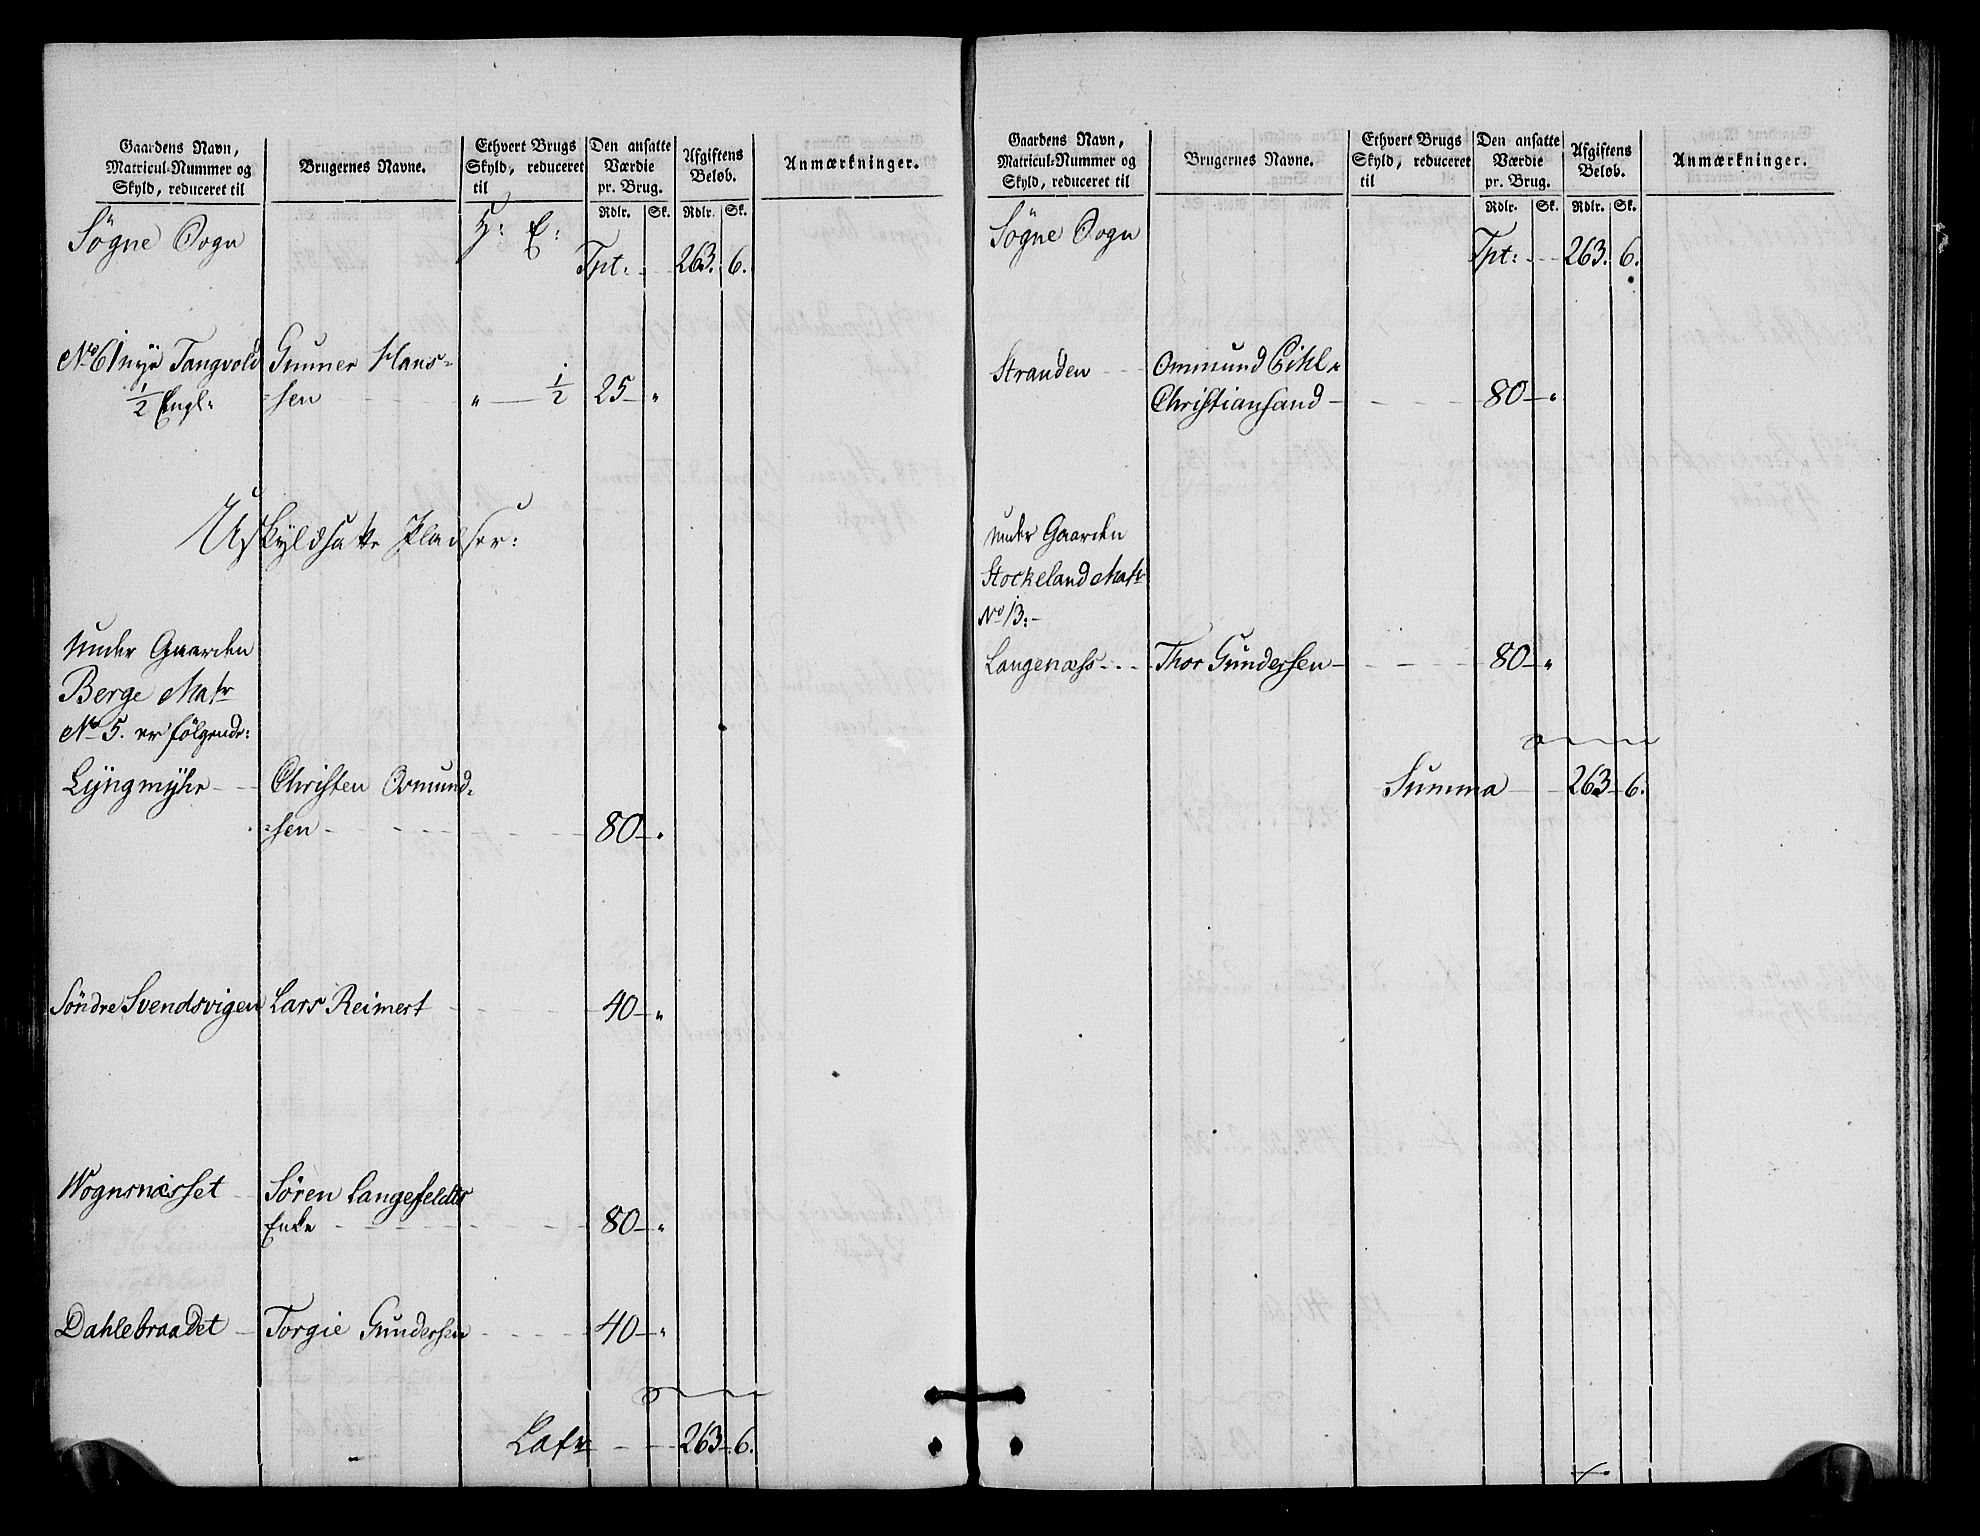 Gaardens Navn, Matricul-Nummer og Skyld, reduceret til
Brugernes Navne.
Ethvert Brugs Skyld, reduceret til
Den ansatte Værdie pr. Brug.
Afgiftens Beløb.
Anmærkninger.
Rdlr. Sk. Rdlr. Sk.
Søgne Sogn H: E:
Tpt: - - 263. 6.
No 61 nye Tangvold Gunner Hans-
1/2 Engl: -sen - - - „ — 1/2 25 — „
Uskyldsatte Pladser:
Under Gaarden
Berge Matr
No 5. er følgende:
Lyngmyhr - - Christen Osmund-
-sen - - - - - 80 — „
Søndre Svendsvigen Lars Reimert - - - 40 — „
Wognsnæsset - Søren Langefeldts
Enke - - - - - 80 — „
Dahlebraadet - Torgie Gundersen - - - 40 — „
Latr - - 263 - 6.
Gaardens Navn, Matricul-Nummer og Skyld, reduceret til
Brugernes Navne.
Ethvert Brugs Skyld, reduceret til
Den ansatte Værdie pr. Brug.
Afgiftens Beløb.
Anmærkninger.
Rdlr. Sk. Rdlr. Sk.
Søgne Sogn
Tpt: - - 263. 6.
Stranden - - Ommund
Christiansand - - - - 80 — „
under Gaarden
Stockeland Matr
No 13: -
Langenæss - - - Thor Gundersen - - - - 80 — „
Summa - - 263 - 6.